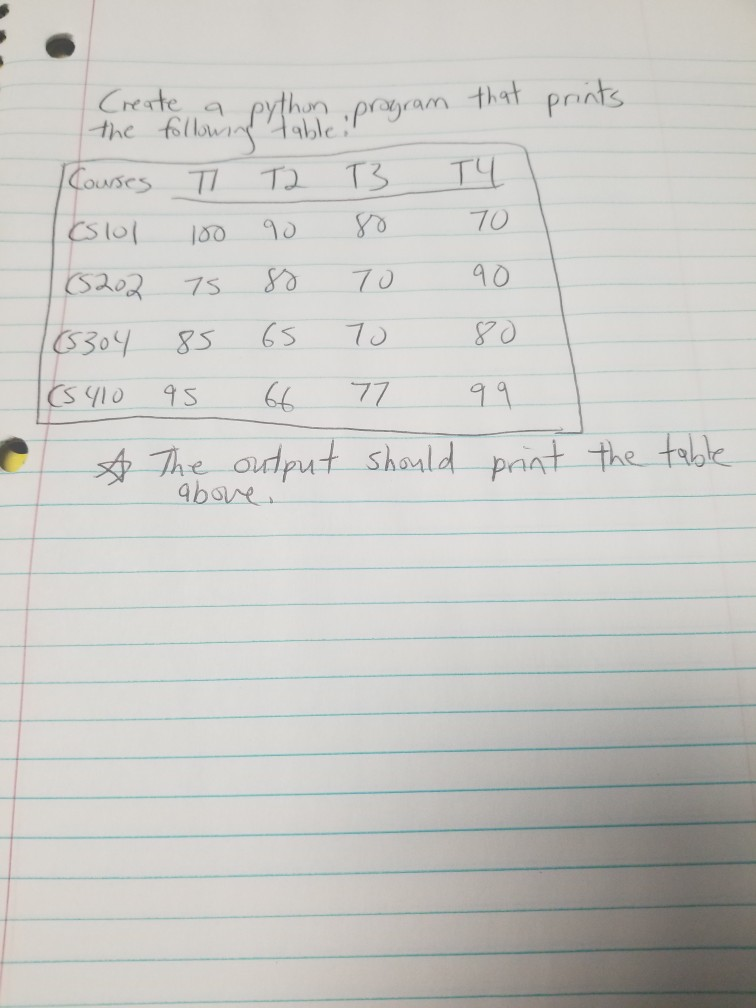 Create a python program that prints
the following table:
Courses T1 T2 T3 T4
CS101 100 90 80 70
CS202 75 80 70 90
CS304 85 65 70 80
CS410 95 66 77 99
☆ The output should print the table
above.